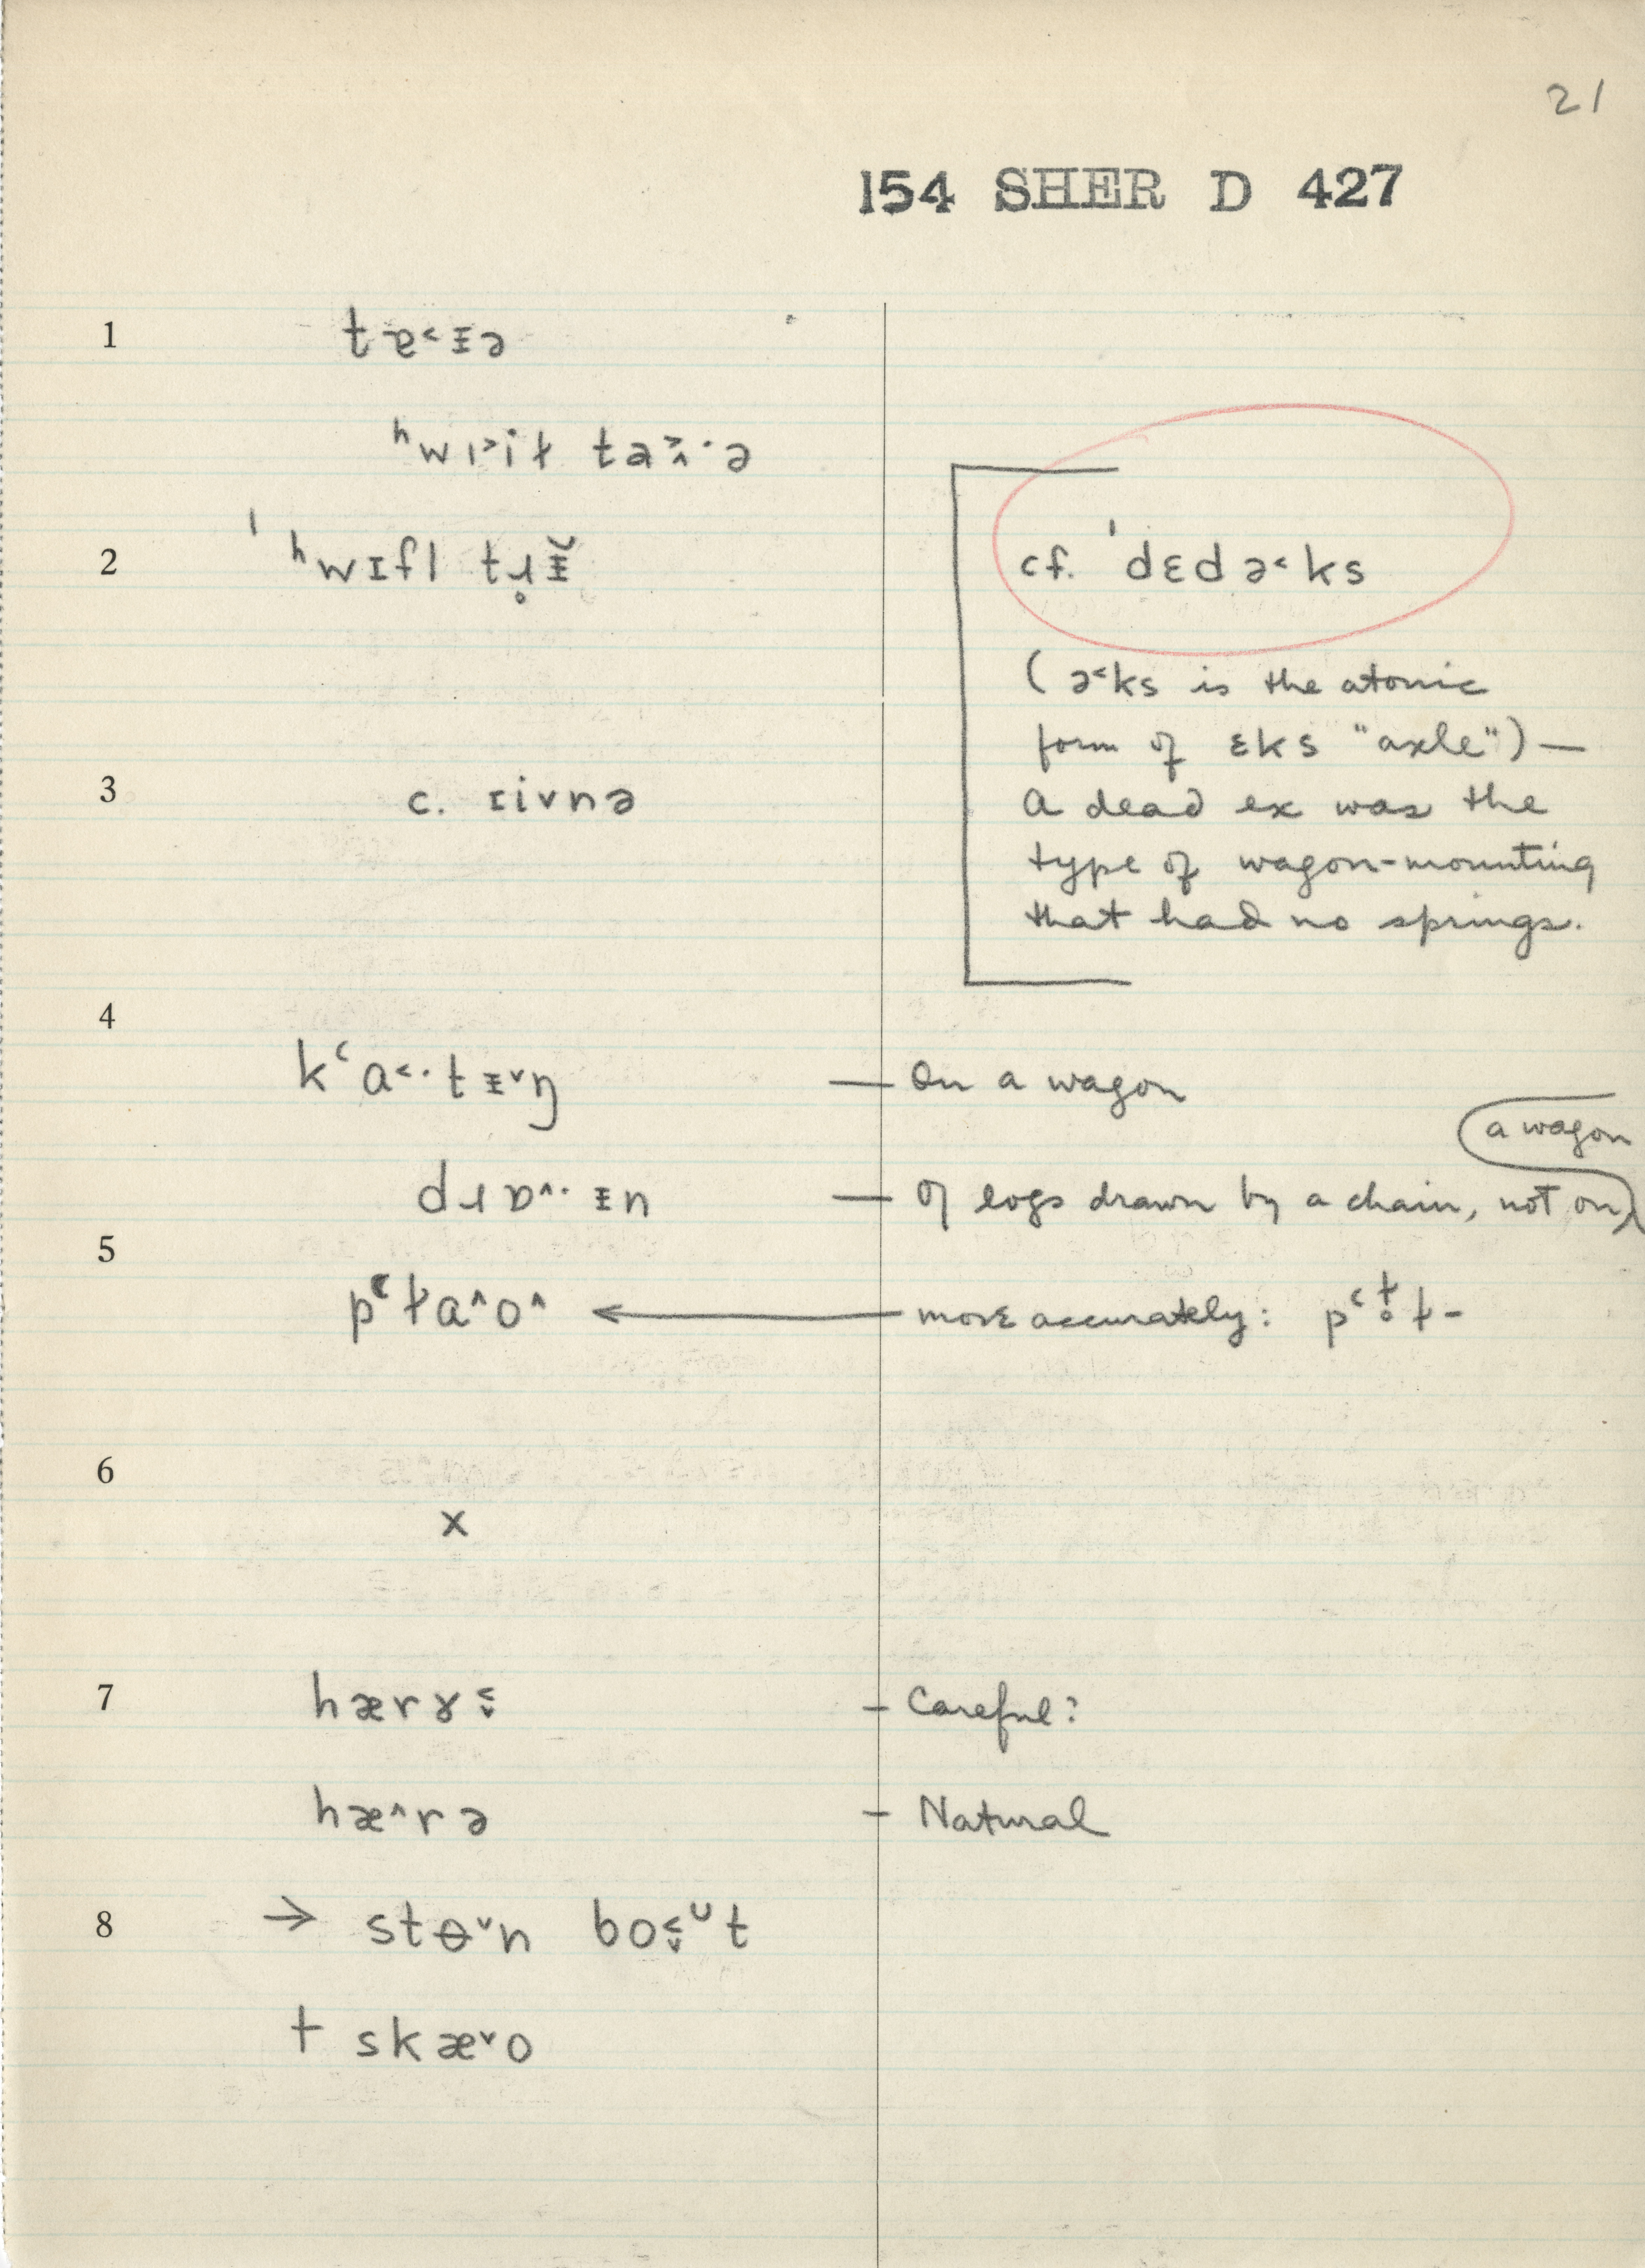 21
154 SHER D 427
1 tɐ˂ᵻə
ʰwɪ˃iɫ
2 ˈʰwɪfl
cf. ˈdɛdə˂ks
(ə˂ks is the atonic
form of ɛks "axle") —
A dead ex was the
type of wagon-mounting
that had no springs.
3 c. ɪivnə
4
kʻa˂·tᵻ˅ŋ — On a wagon
dɹɒ^·ᵻn — Of logs drawn by a chain, not on a wagon
5
pʻɫa^o^ ← more accurately:
6
x
7 hærɤ - Careful?
hæ^rə - Natural
8 → stɵ˅n
+ skæ˅o